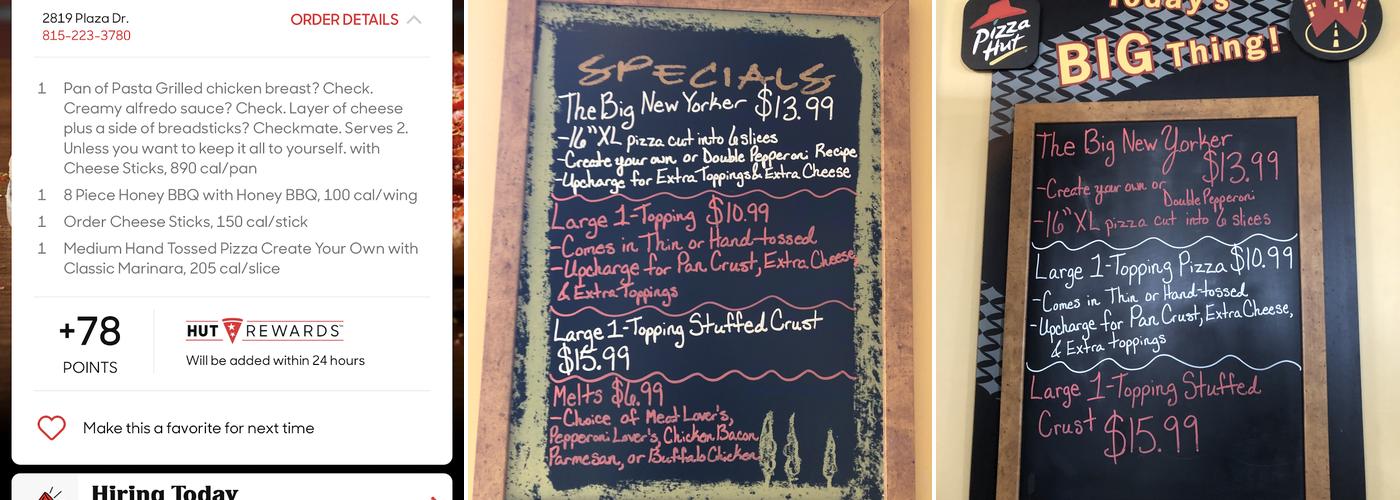 2819 Plaza Dr.
ORDER DETAILS
815-223-3780
1 Pan of Pasta Grilled chicken breast? Check.
Creamy alfredo sauce? Check. Layer of cheese
plus a side of breadsticks? Checkmate. Serves 2.
Unless you want to keep it all to yourself. with
Cheese Sticks, 890 cal/pan
1 8 Piece Honey BBQ with Honey BBQ, 100 cal/wing
1 Order Cheese Sticks, 150 cal/stick
1 Medium Hand Tossed Pizza Create Your Own with
Classic Marinara, 205 cal/slice
+78
POINTS
HUT REWARDS
Will be added within 24 hours
Make this a favorite for next time
Hiring Today
SPECIALS
The Big New Yorker $13.99
-16" XL pizza cut into 6 slices
-Create your own or Double Pepperoni Recipe
-Upcharge for Extra Toppings & Extra Cheese
Large 1-Topping $10.99
-Comes in Thin or Hand-tossed
-Upcharge for Pan Crust, Extra Cheese,
& Extra Toppings
Large 1-Topping Stuffed Crust
$15.99
Melts $6.99
-Choice of Meat Lover's,
Pepperoni Lover's, Chicken Bacon
Parmesan, or Buffalo Chicken
Today's
BIG Thing!
Pizza
Hut
The Big New Yorker
$13.99
-Create your own or
Double Pepperoni
-16" XL pizza cut into 6 slices
Large 1-Topping Pizza $10.99
-Comes in Thin or Hand-tossed
-Upcharge for Pan Crust, Extra Cheese,
& Extra toppings
Large 1-Topping Stuffed
Crust $15.99